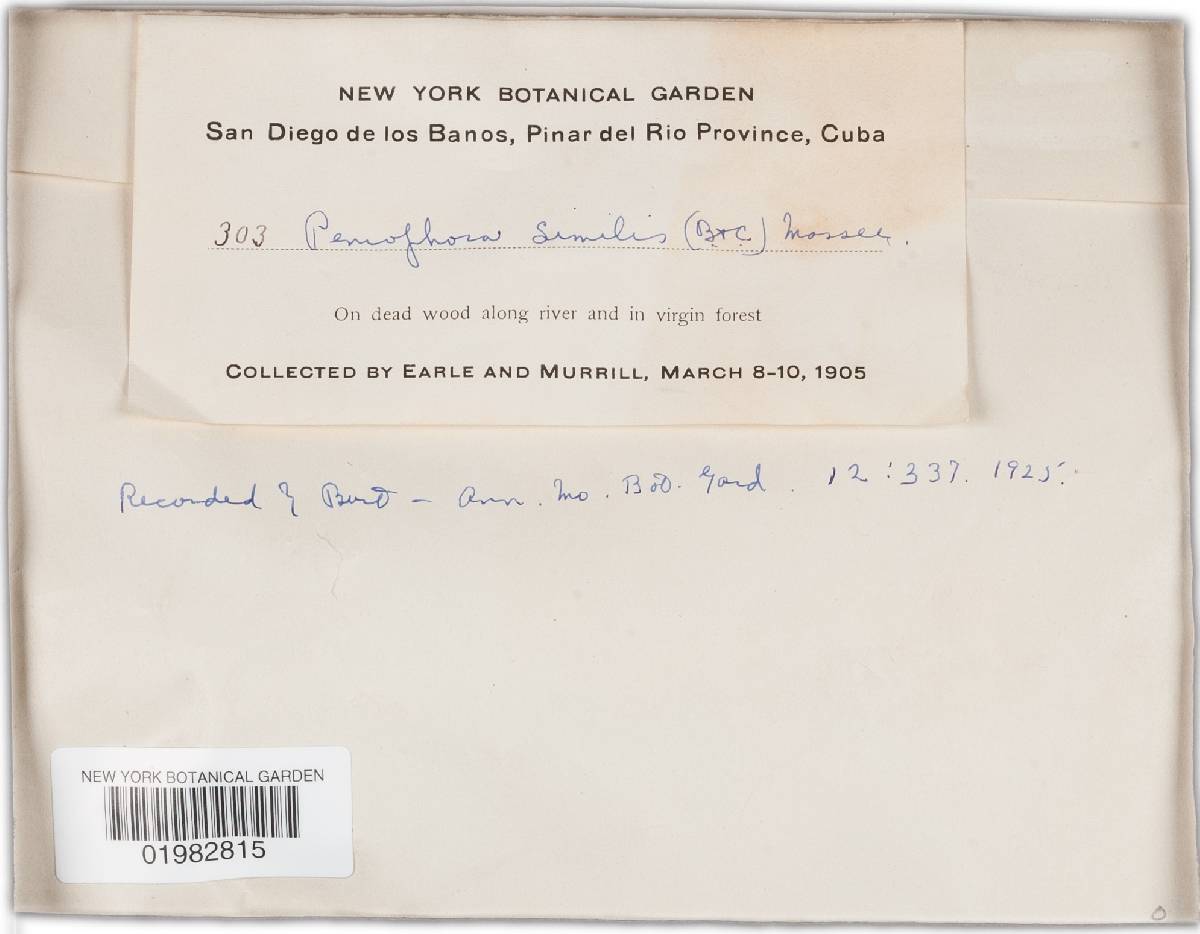 NEW YORK BOTANICAL GARDEN
San Diego de los Banos, Pinar del Rio Province, Cuba
303 Peniophora similis (B+C.) Massee.
On dead wood along river and in virgin forest
COLLECTED BY EARLE AND MURRILL, MARCH 8-10, 1905
Recorded by Burt - Ann. Mo. Bot. Gard. 12:337. 1925.
NEW YORK BOTANICAL GARDEN
01982815